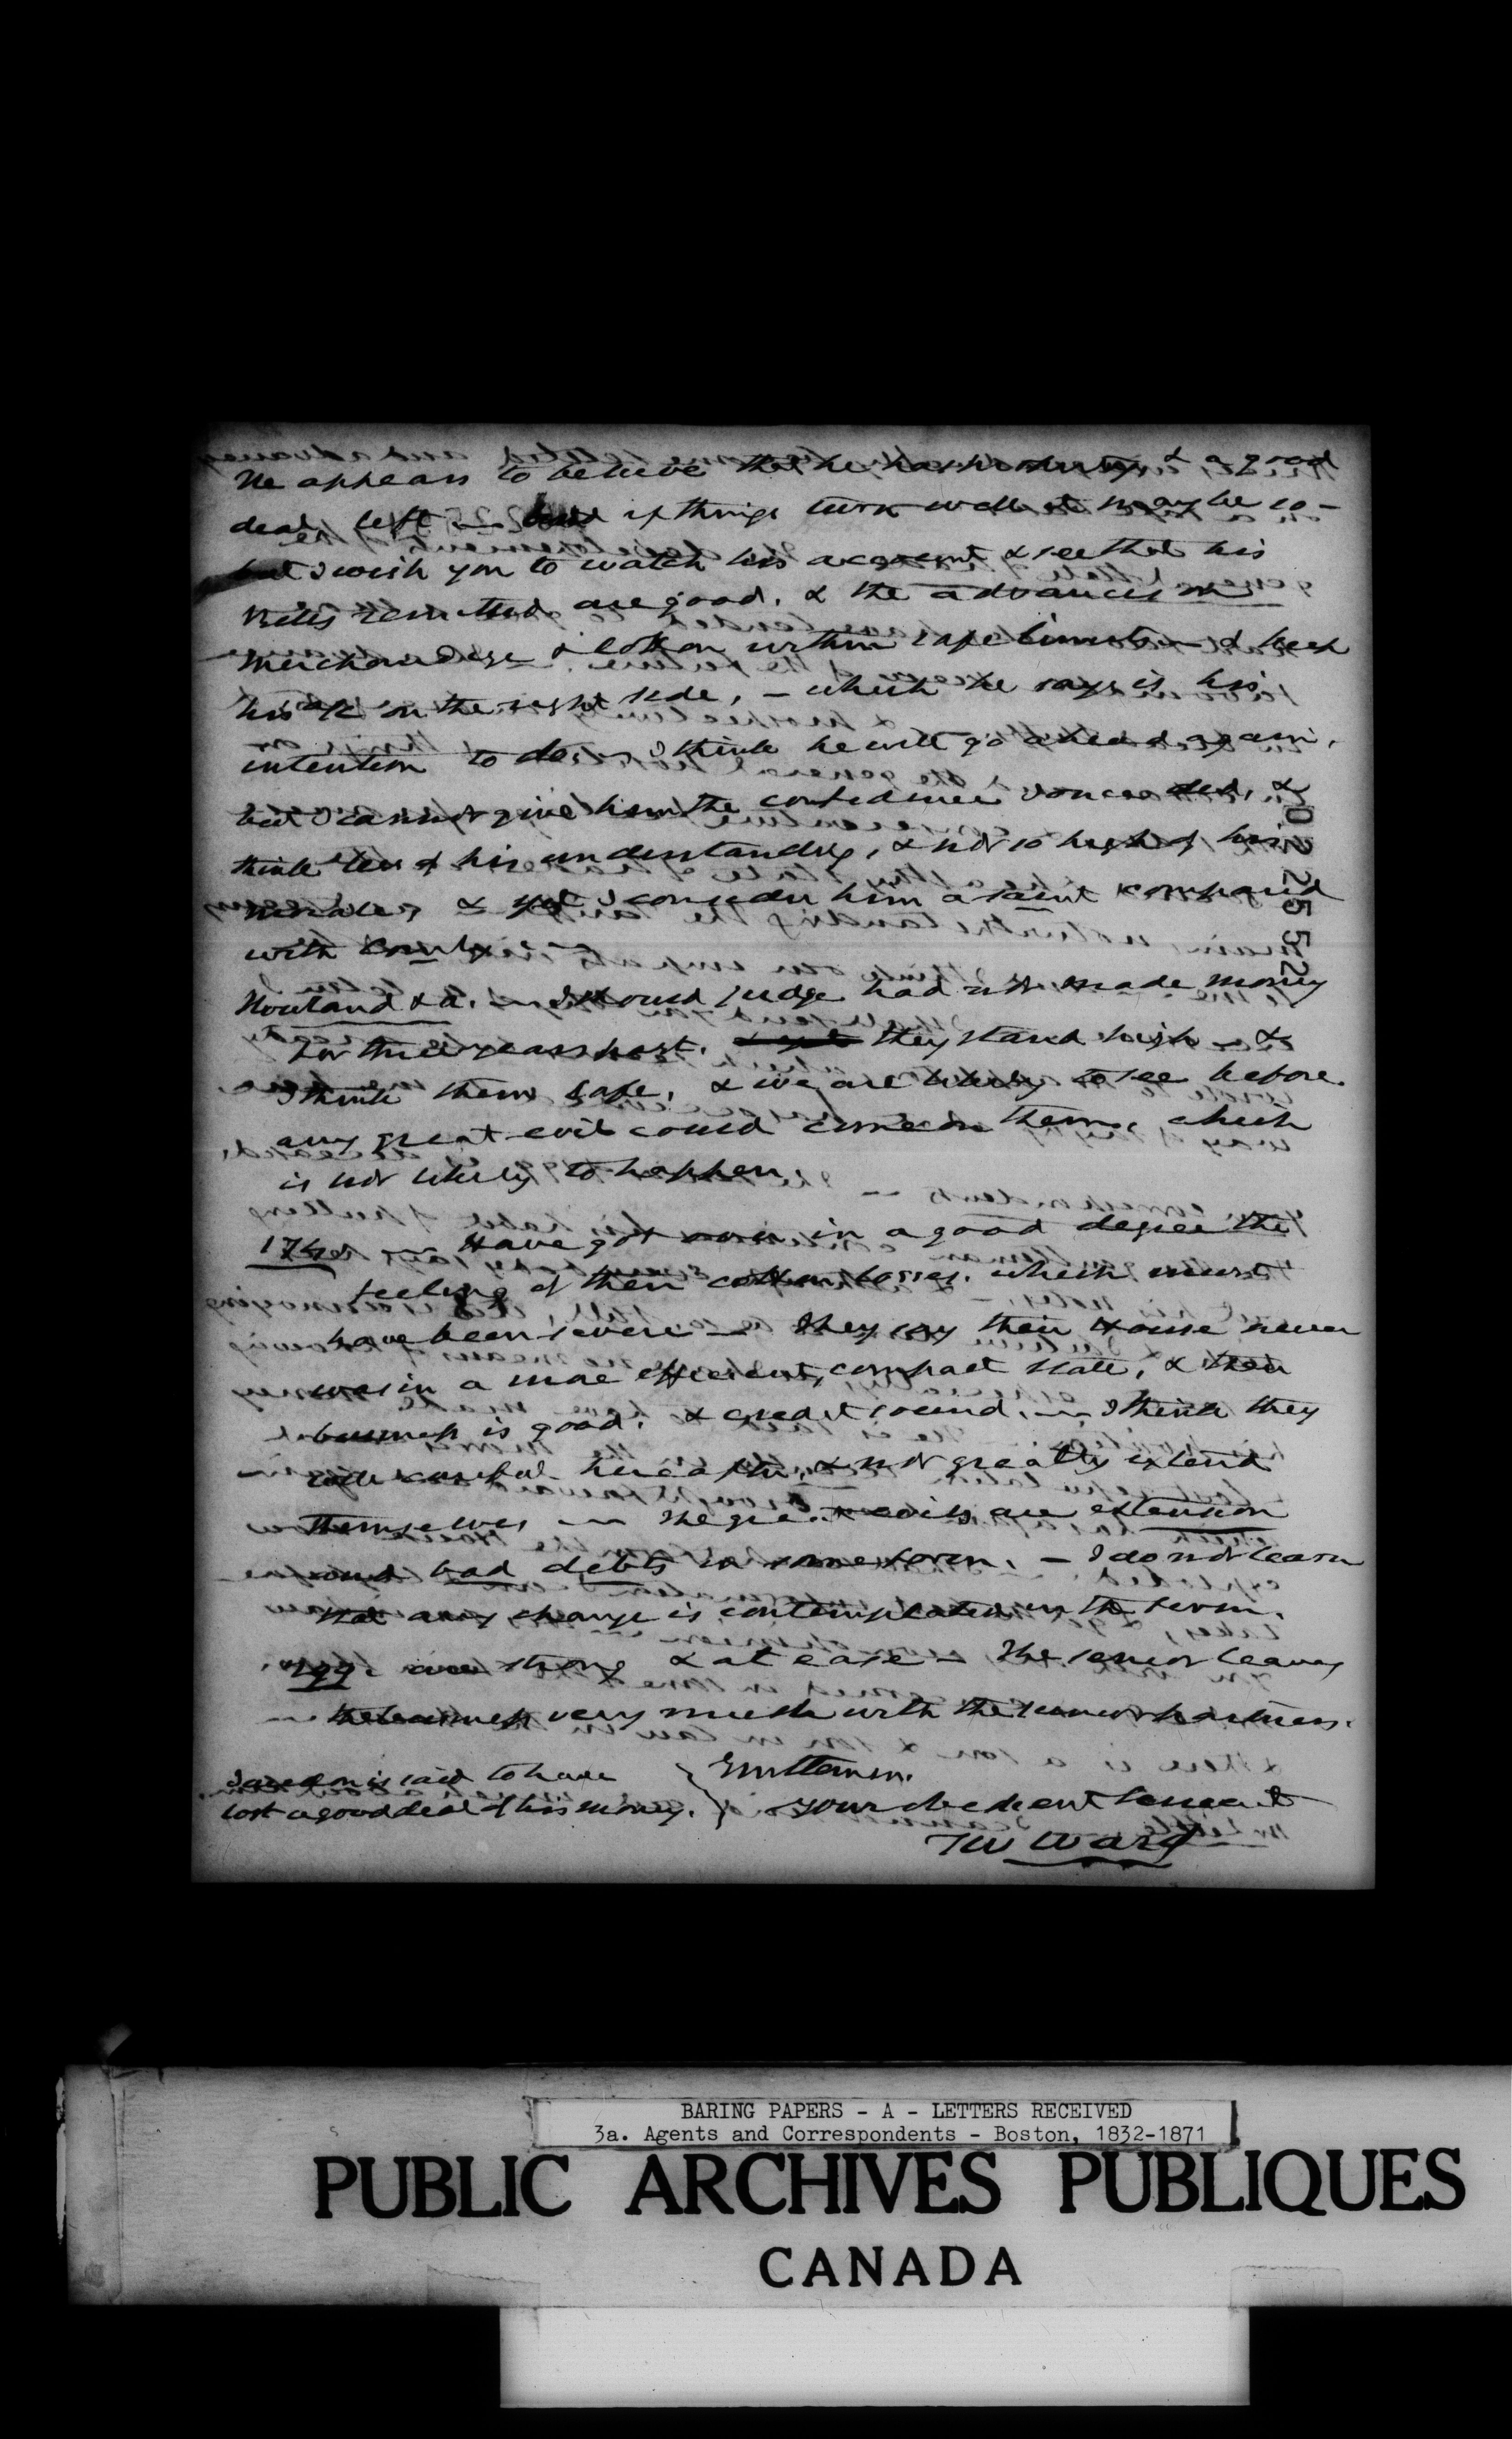 He appears to believe that he has his property & a good
deal left — and if things turn well it may be so —
but I wish you to watch his account & see that his
Bills remitted are good, & the advances on
merchandise & cotton within safe limits — & keep
his a/c on the right side, — which he says is his
intention to do. — I think he will go ahead again,
but I cannot give him the confidence I once did, &
think less of his understanding, & not so high of his
morale, & yet I consider him a saint compared
with
Howland & a. — I should judge had not made money
for three years past. they stand high — &
I think them safe, & we are likely to see before
any great evil could come on them, which
is not likely to happen.
174 — Have got over in a good degree the
feeling of their cotton losses, which must
have been severe — They say their House never
was in a more efficient, compact state, & their
business is good, & credit sound. — I think they
careful hereafter, & not greatly extend
themselves — The great evils are extension
and bad debts in some form. — I do not learn
that any change is contemplated in the firm.
199. are strong & at ease — The senior leaves
the business very much with the junior partners.
is said to have
lost a good deal of his money.
Gentlemen,
Your obedient Servant
TW Ward
05552
BARING PAPERS - A - LETTERS RECEIVED
3a. Agents and Correspondents - Boston, 1832-1871
PUBLIC ARCHIVES PUBLIQUES
CANADA